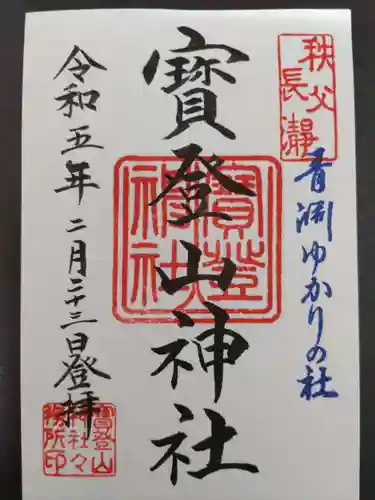 秩父
長瀞
青淵ゆかりの社
寳登山神社
寳登山神社
令和五年二月二十三日登拝
寳登山神社々務所印